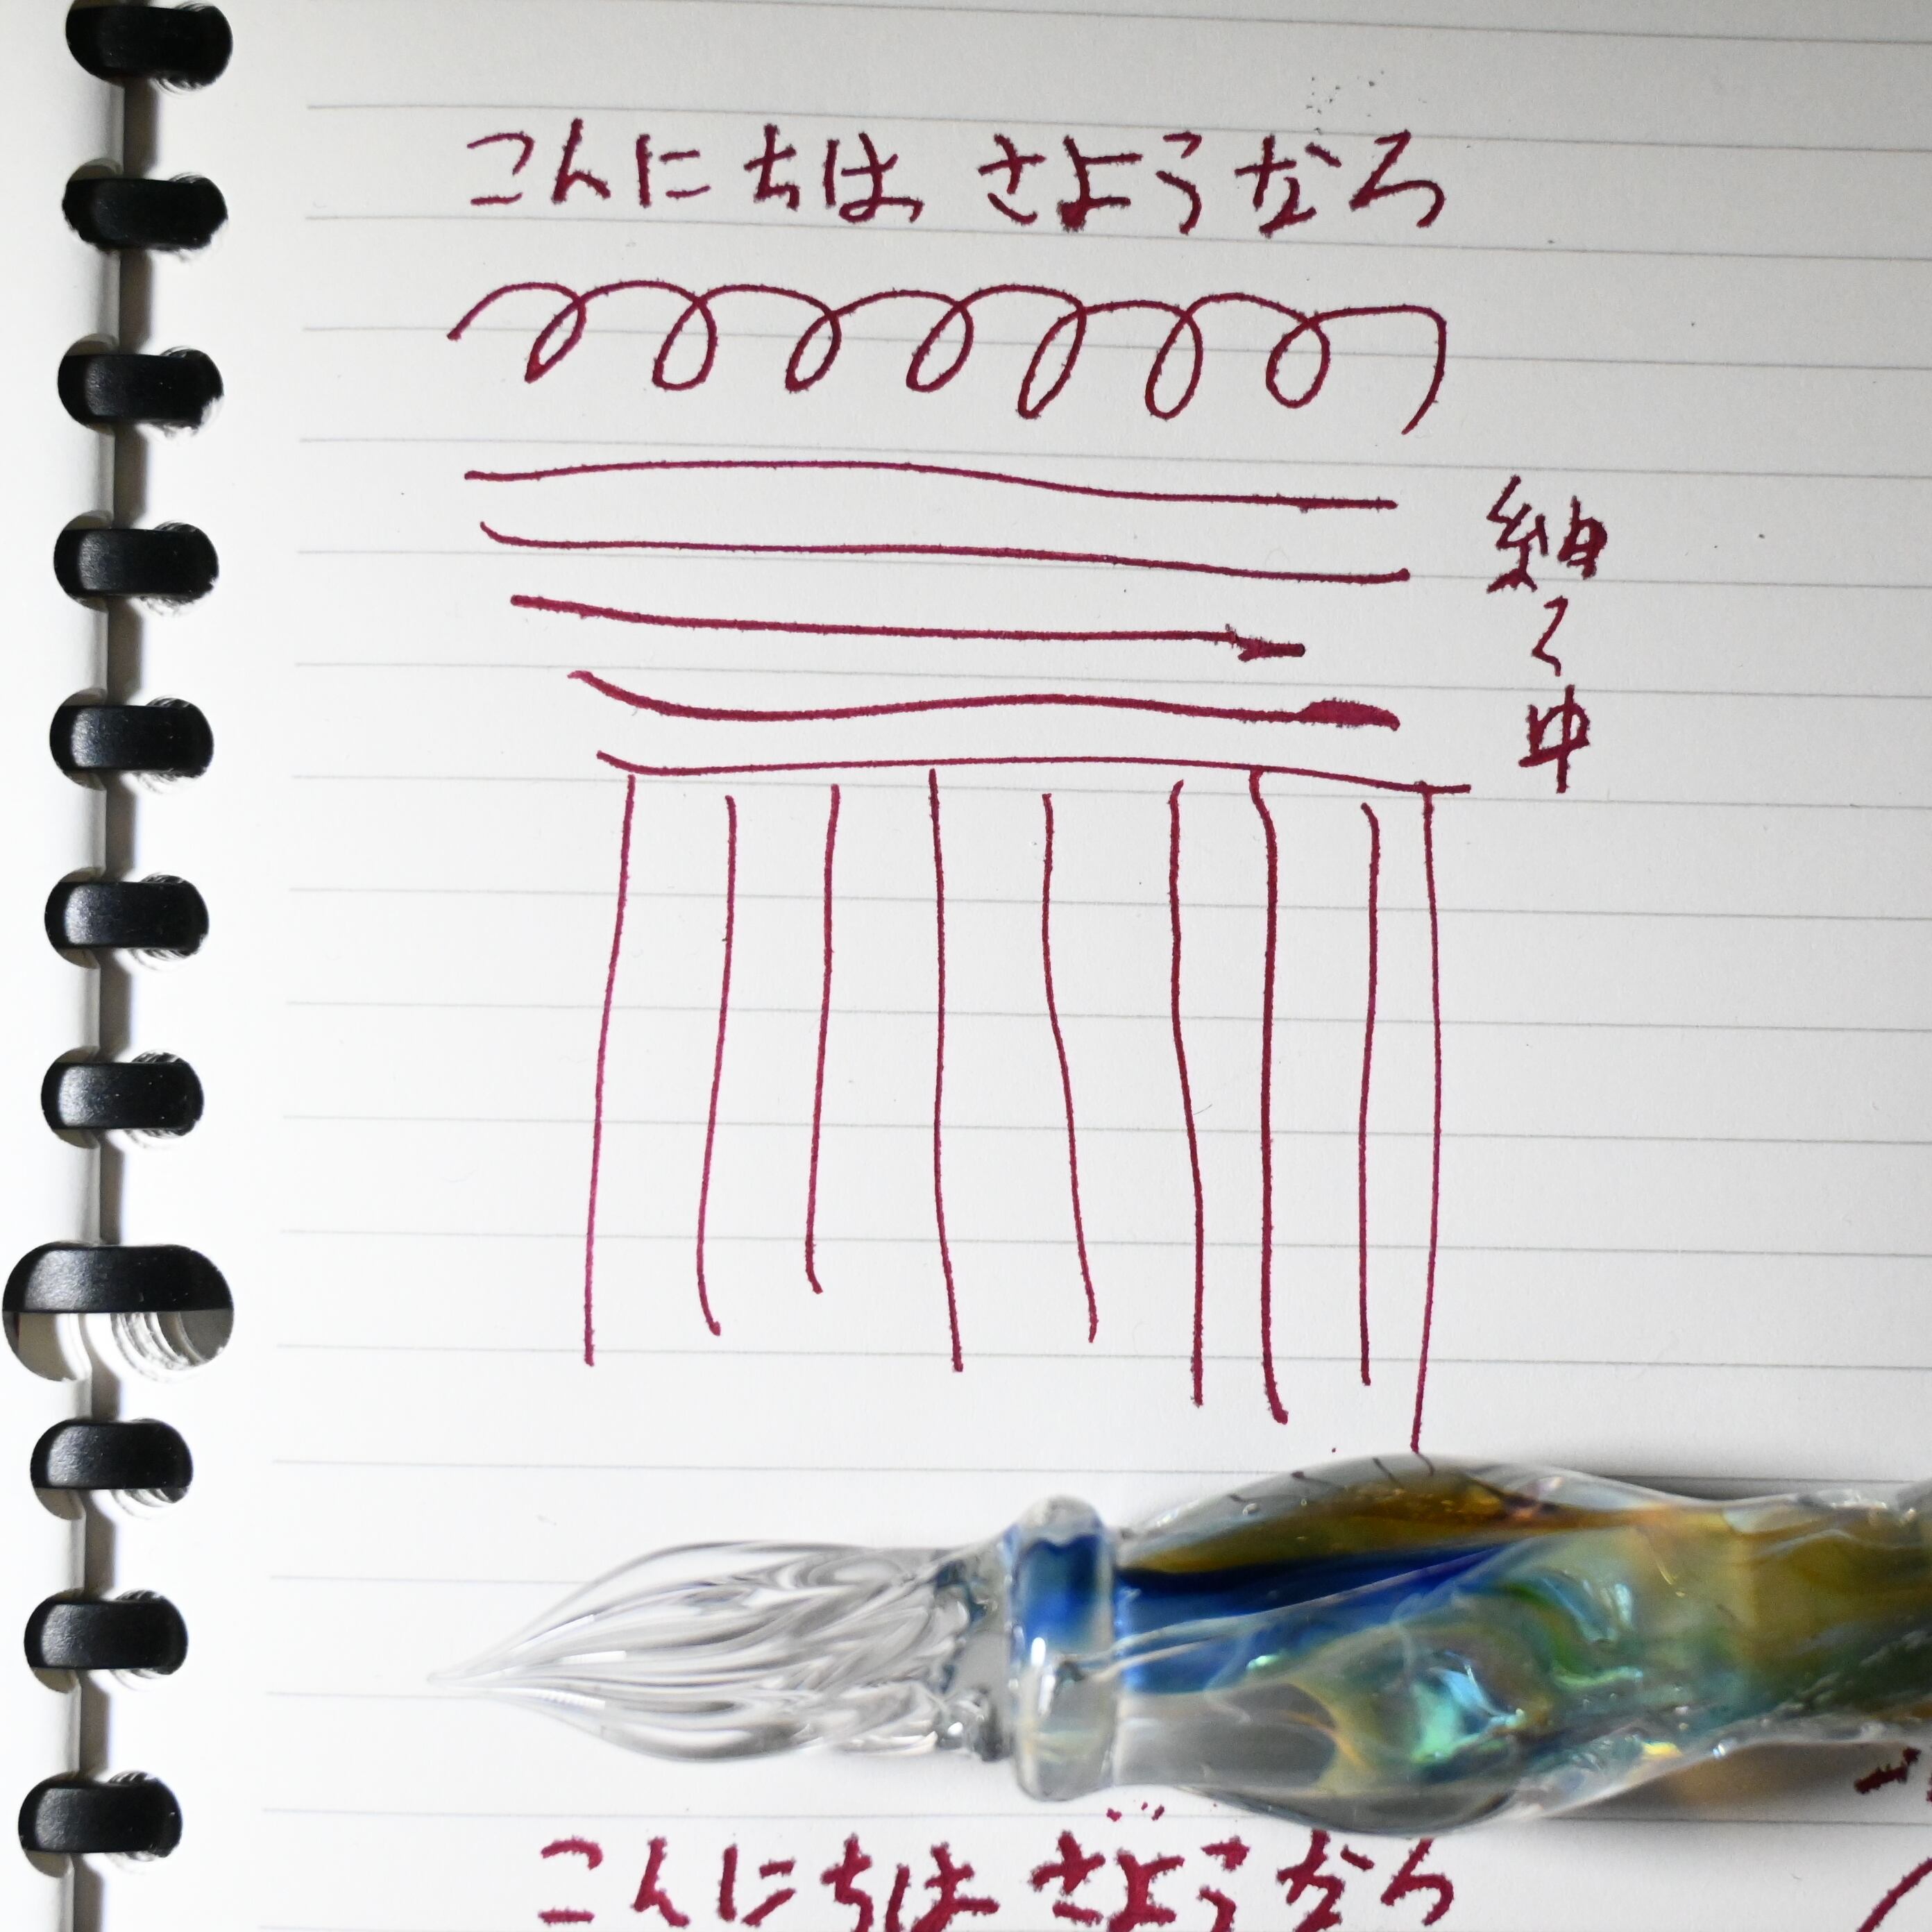 こんにちは さようなら
細
〜
中
こんにちは さようなら